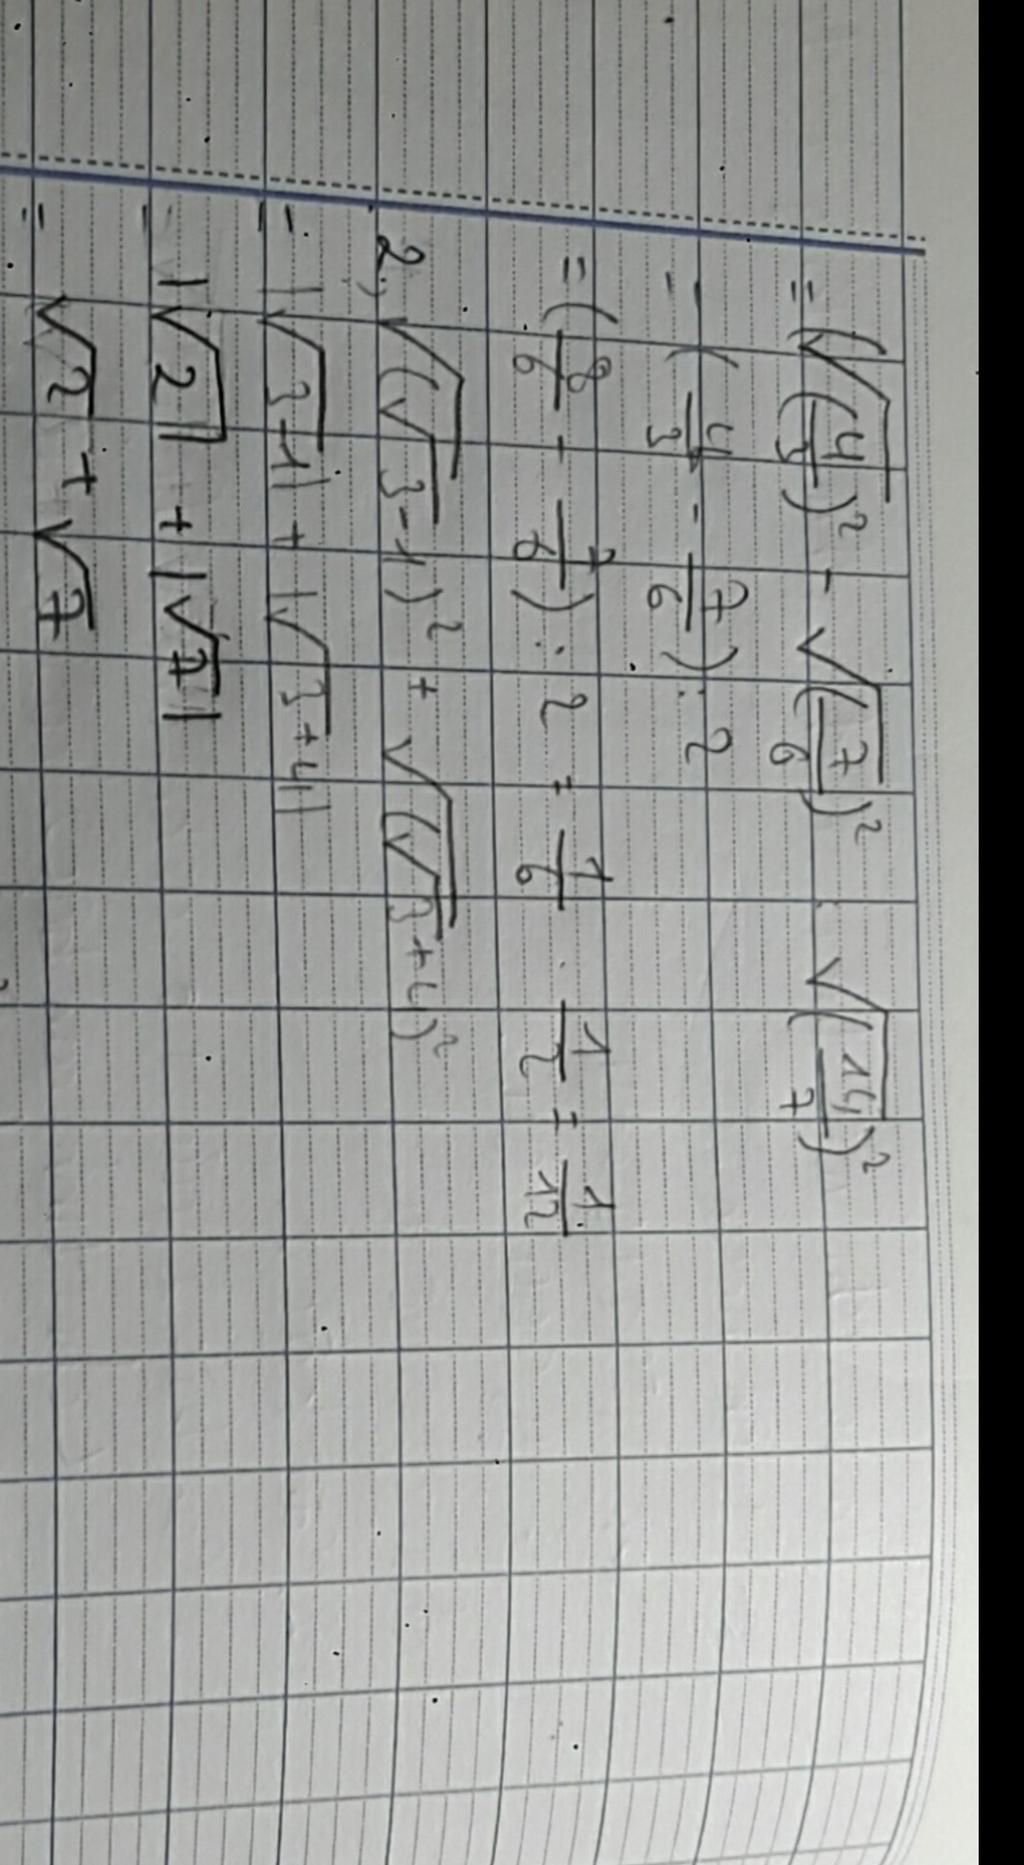 = (√(4/3)² - √(7/6)² : √(14/7)²
= (4/3 - 7/6) : 2
= (8/6 - 7/6) : 2 = 1/6 . 1/2 = 1/12
2, √(√3-1)² + √(√3+4)²
= |√3-1| + |√3+4|
= |√2| + |√7|
= √2 + √7